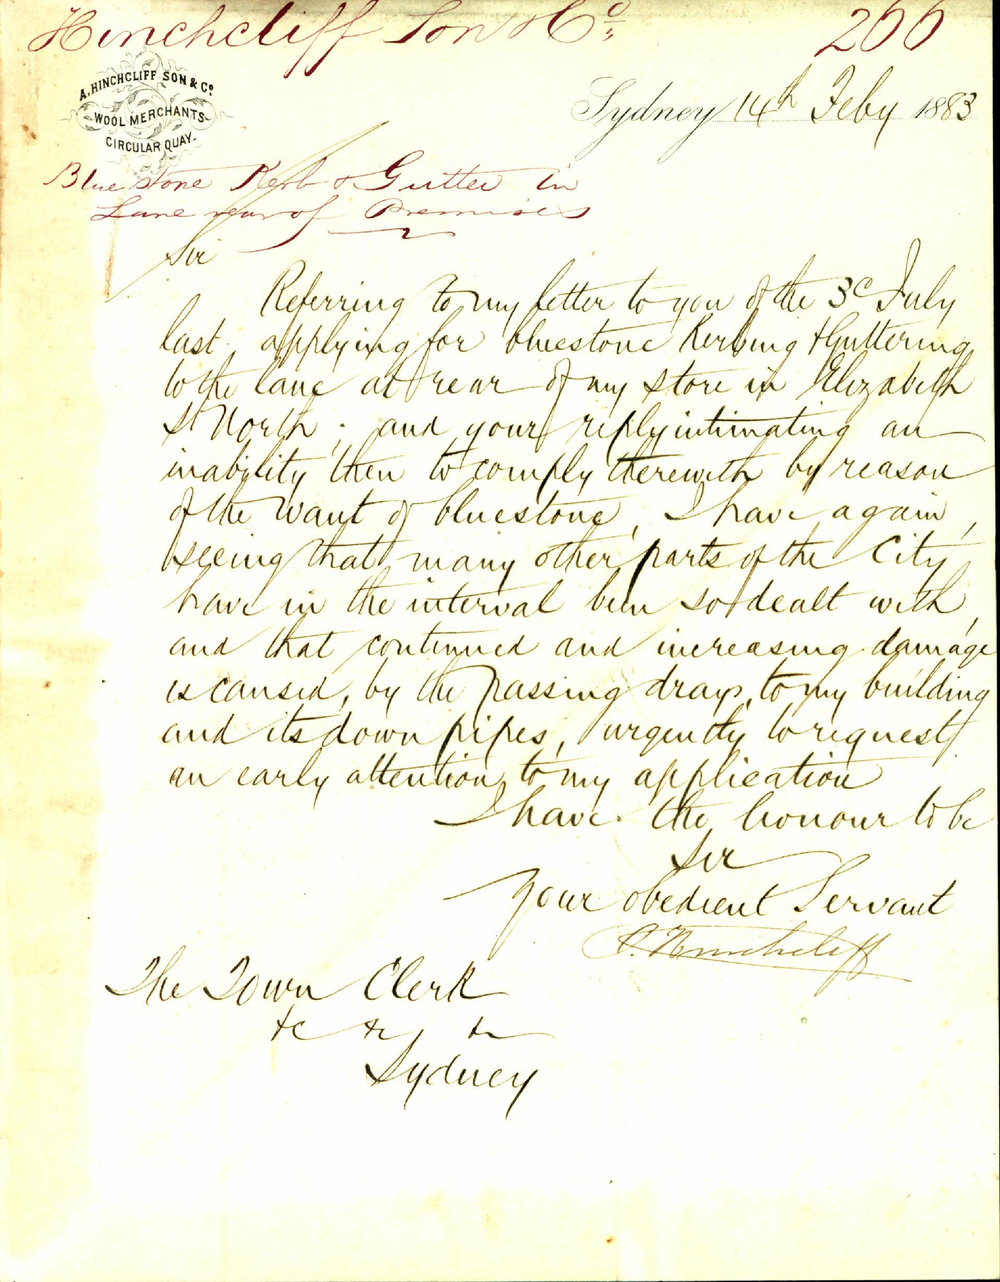 Hinchcliff Son & Co. 266
A. HINCHCLIFF SON & Co.
WOOL MERCHANTS
CIRCULAR QUAY.
Sydney 14th Feby 1883
Blue stone Kerb & Gutter in
Lane rear of Premises
Sir
Referring to my letter to you of the 3d July
last, applying for bluestone Kerbing & Guttering
to the lane at rear of my store in Elizabeth
St North; and your reply intimating an
inability then to comply therewith by reason
of the want of bluestone, I have again,
seeing that many other parts of the City
have in the interval been so dealt with,
and that continued and increasing damage
is caused, by the passing drays, to my building
and its down pipes, urgently to request
an early attention to my application
I have the honour to be
Sir
Your obedient Servant
A. Hinchcliff
The Town Clerk
&c &c &c
Sydney